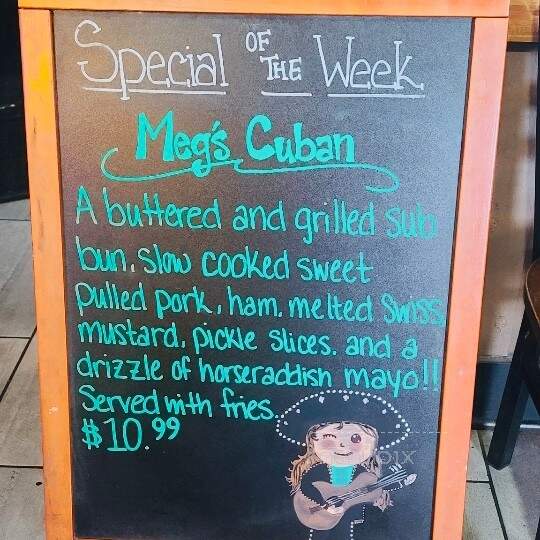 Special OF THE Week
Meg's Cuban
A buttered and grilled sub
bun, slow cooked sweet
pulled pork, ham, melted Swiss
mustard, pickle slices, and a
drizzle of horseraddish mayo!!
Served with fries.
$10.99